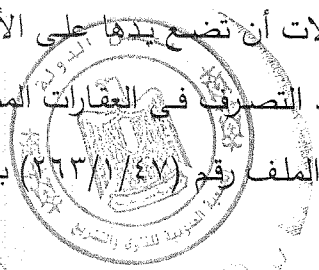 لات أن تضع يدها على الأ
التصرف في العقارات الم
الملف رقم (٢٦٣/١/٤٧) ب
الدولة
العمومية للفتوى والتشريع